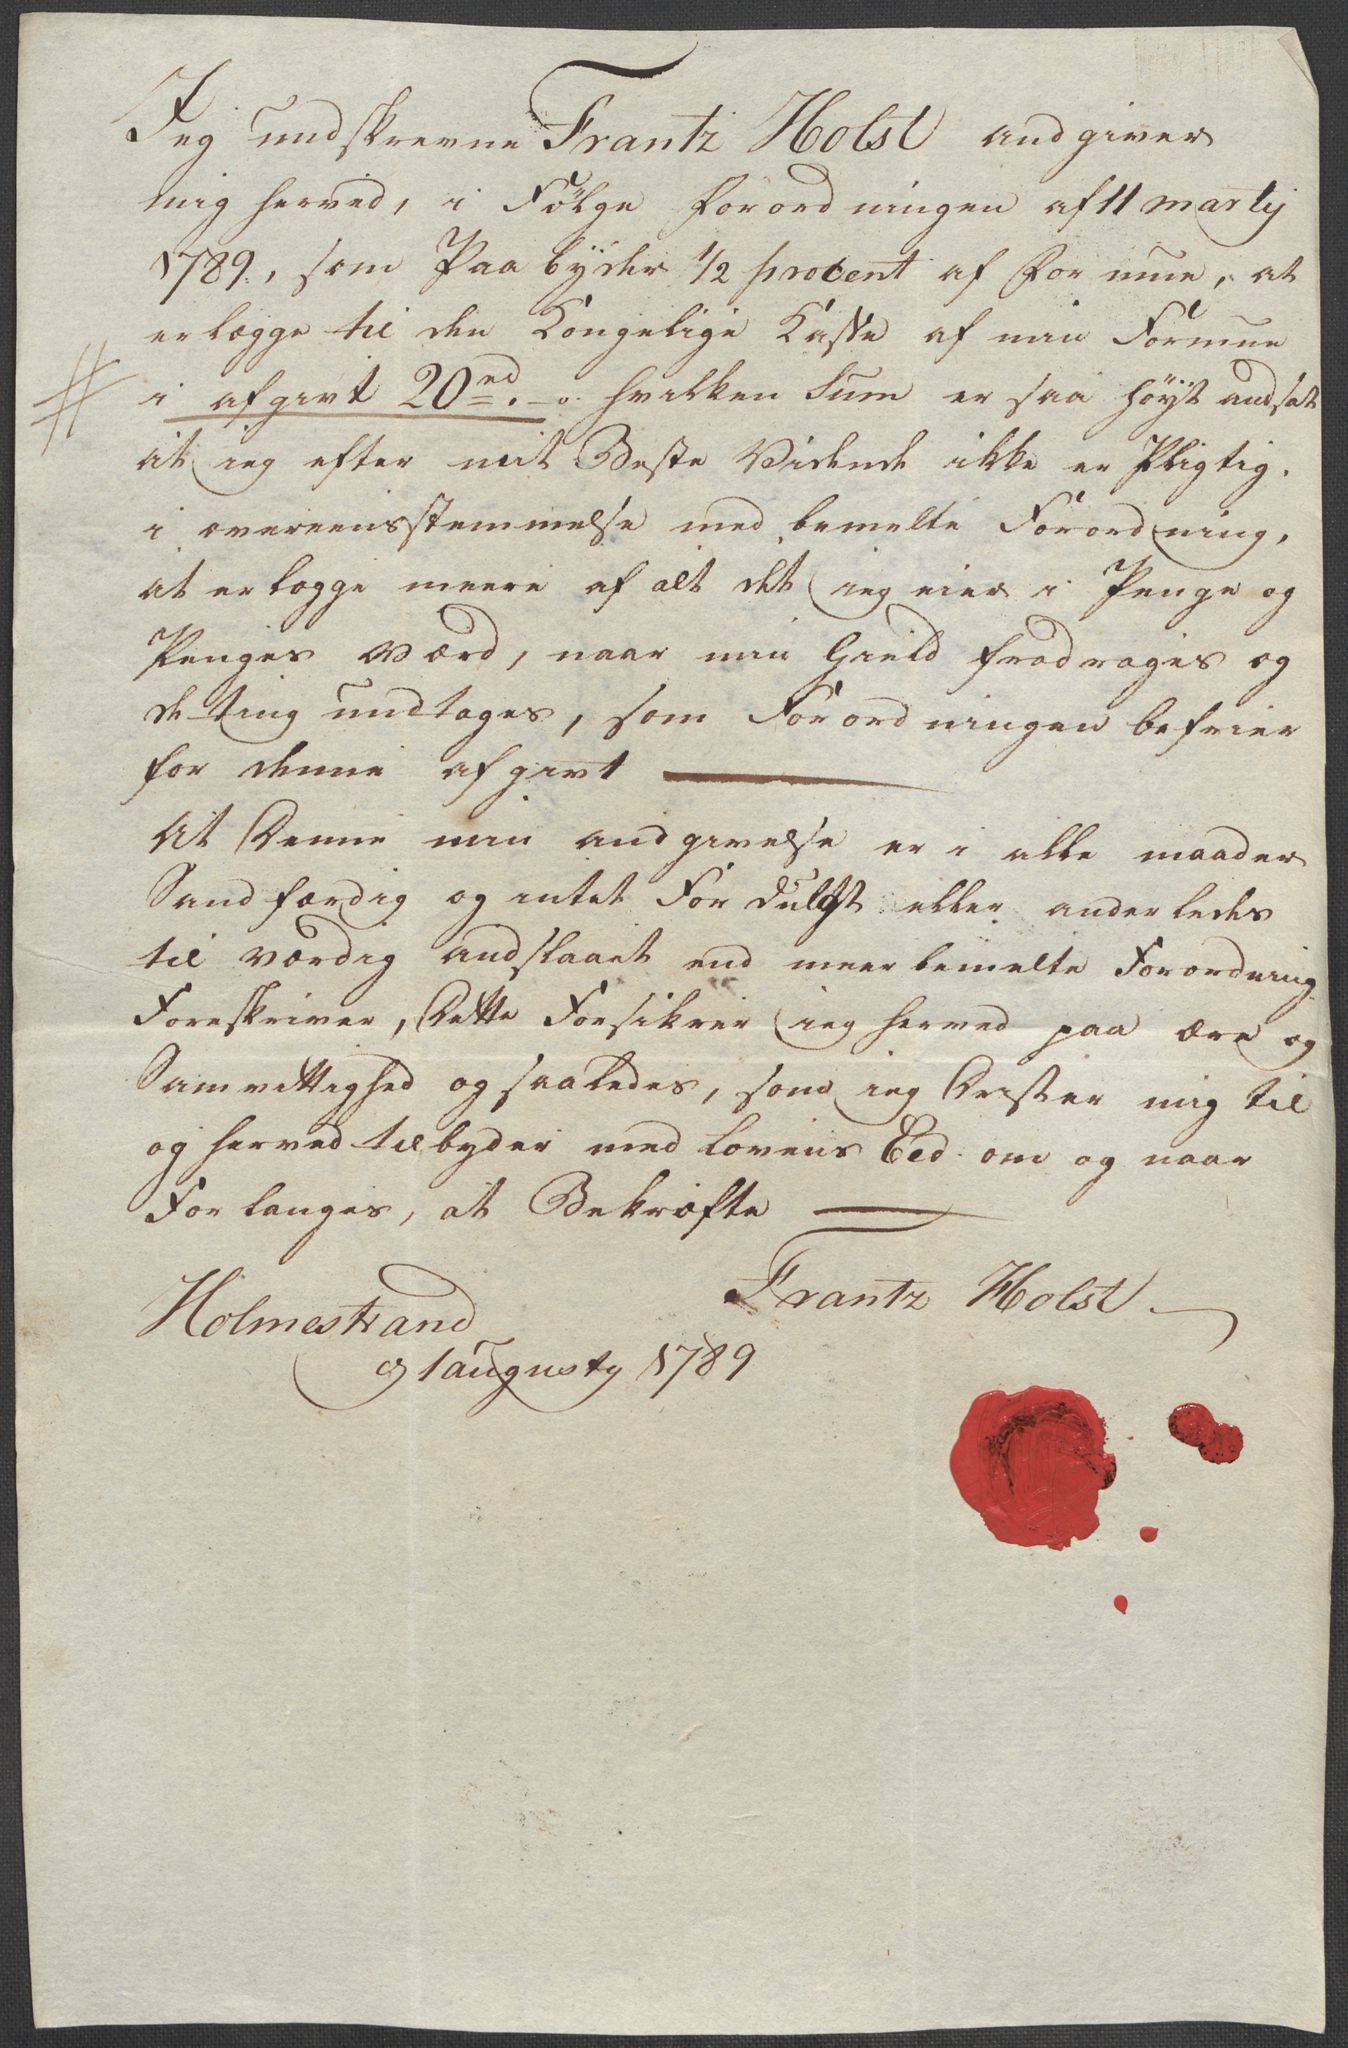 Jeg undskrevne Frantz Holst andgiver
mig herved, i Følge Forordningen af 11 martij
1789, som Paabyder 1/2 procent af Formue, at
erlegge til den Kongelige Kasse af min Formue
i afgivt 20 rd. - o. hvilken Sum er saa høyt andsat
at ieg efter mit Beste Vidende ikke er Pligtig.
i overeensstemmelse med bemelte Forordning,
at erlegge meere af alt det ieg eier i Penge og
Penges Værd, naar min Gield fradrages og
de ting undtages, som Forordningen befrier
for denne afgivt
At Denne min andgivelse er i alle maader
Sandfærdig og intet Fordulgt eller anderledes
til værdig andslaaet end meerbemelte Forordning
Foreskriver, Dette Forsikrer ieg herved paa ære og
Samvittighed og saaledes, som ieg Drister mig til
og herved tilbyder med Lovens Eed om og naar
Forlanges, at Bekræfte
Frantz Holst
Holmestrand
d 1 augusty 1789